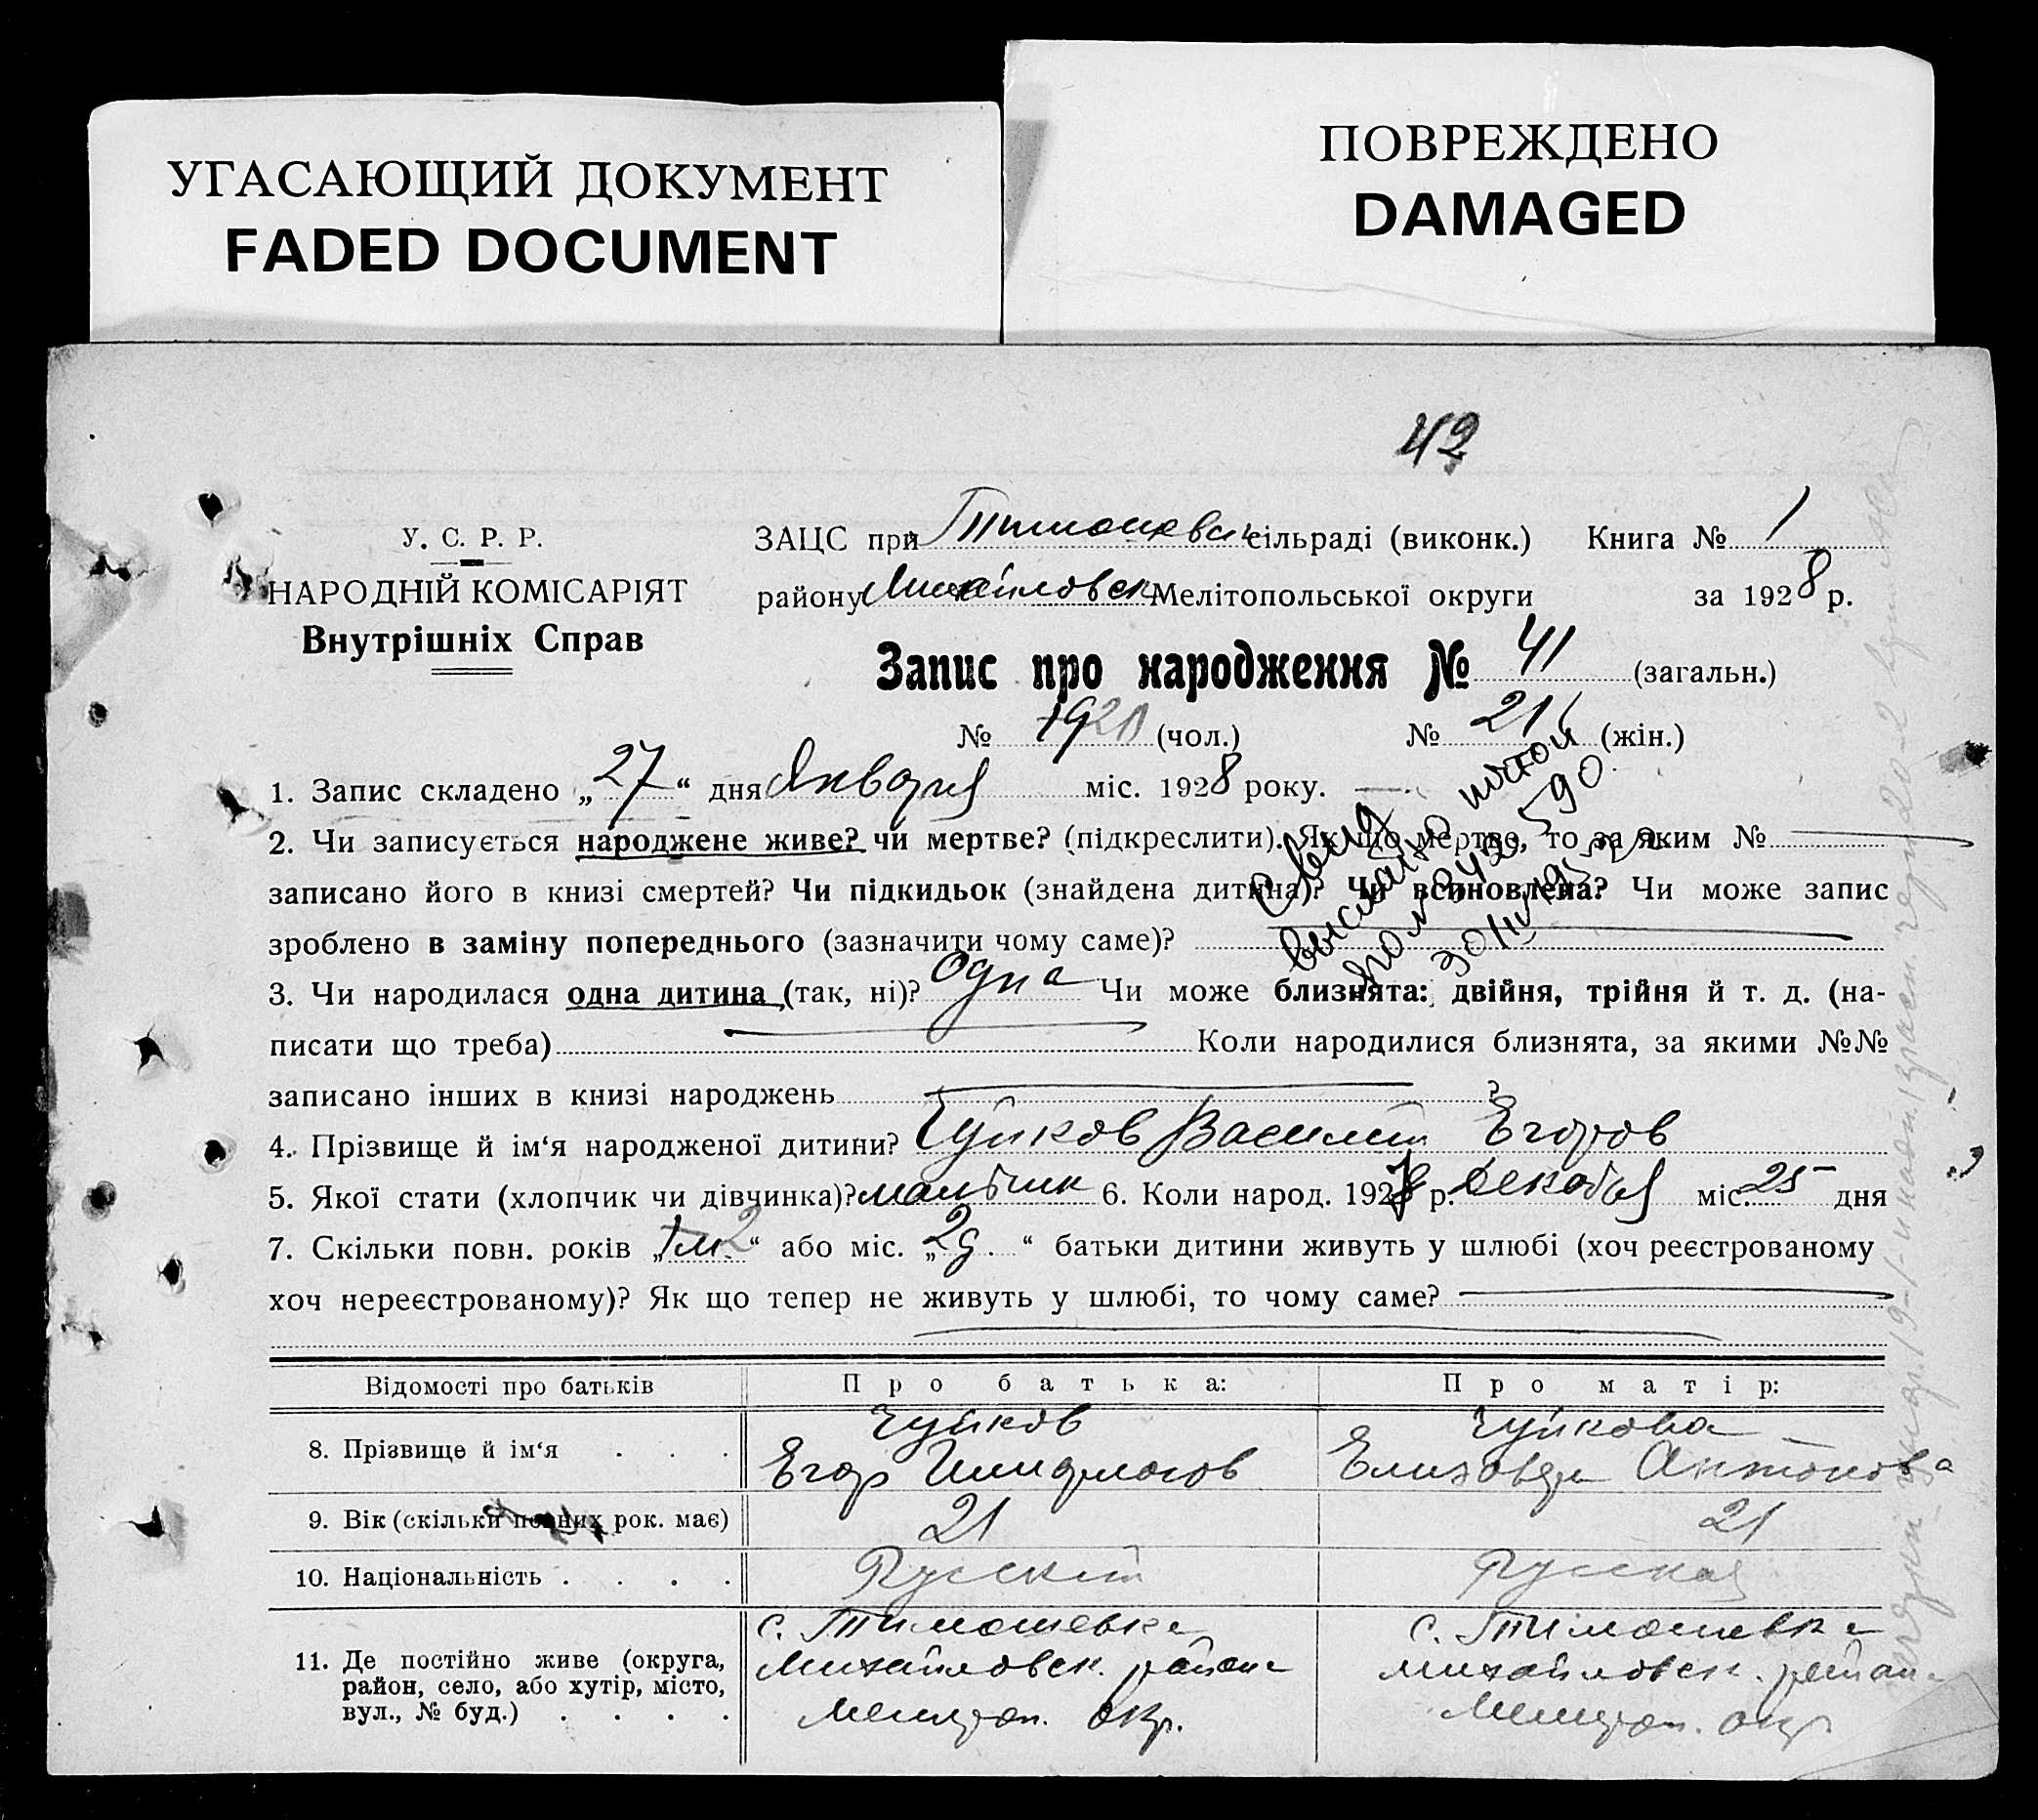 УГАСАЮЩИЙ ДОКУМЕНТ
FADED DOCUMENT
ПОВРЕЖДЕНО
DAMAGED
42
У. С. Р. Р.
НАРОДНІЙ КОМІСАРІЯТ
Внутрішніх Справ
ЗАЦС при Тимошевск сільраді (виконк.) Книга № 1
району Михайловск Мелітопольської округи за 1928 р.
Запис про народження № 41 (загальн.)
№ (чол.) № 21 (жін.)
1. Запис складено „27“ дня Января міс. 1928 року. —
2. Чи записується народжене живе? чи мертве? (підкреслити). Як що мертве, то за яким №
записано його в книзі смертей? Чи підкидьок (знайдена дитина)? Чи всиновлена? Чи може запис
зроблено в заміну попереднього (зазначити чому саме)?
3. Чи народилася одна дитина (так, ні)? Одна Чи може близнята: двійня, трійня й т. д. (на-
писати що треба) Коли народилися близнята, за якими №№
записано інших в книзі народжень ?
4. Прізвище й ім‘я народженої дитини? Чуйков Василий Егоров
5. Якої стати (хлопчик чи дівчинка)? мальчик 6. Коли народ. 1927 р. Декабря міс. 25 дня
7. Скільки повн. років „ “ або міс. „2д. “ батьки дитини живуть у шлюбі (хоч реєстрованому
хоч нереєстрованому)? Як що тепер не живуть у шлюбі, то чому саме?
Відомості про батьків Про батька: Про матір:
8. Прізвище й ім‘я . . . Чуйков Чуйкова
Егор Елизовета Антонова
9. Вік (скільки повних рок. має) 21 21
10. Національність . . . . Русский Русская
11. Де постійно живе (округа, район, село, або хутір, місто, вул., № буд.) . . . .
с. Тимошевка с. Тимошевка
Михайловск. района Михайловск. района
Мелитоп. окр. Мелитоп. окр